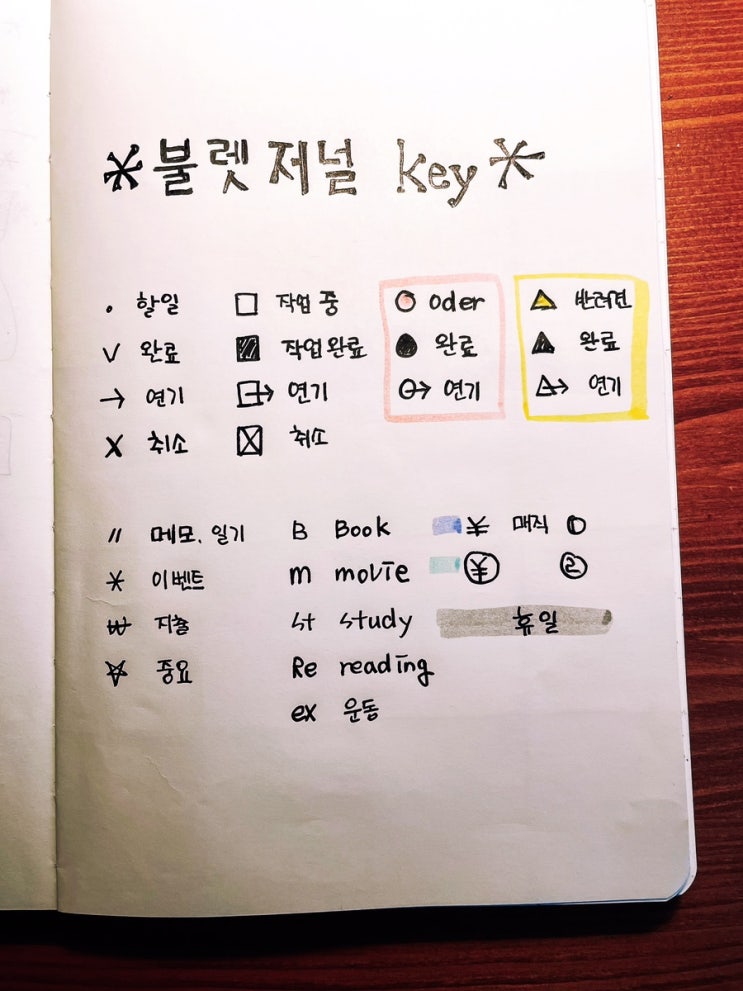 *불렛저널 key*
· 할일 □ 작업 중 ○ oder △ 반려견
v 완료 ■ 작업완료 ● 완료 ▲ 완료
→ 연기 → 연기 → 연기 → 연기
x 취소 ☒ 취소
〃 메모. 일기 B Book 매직
* 이벤트 m movie
₩ 지출 st study 휴일
☆ 중요 Re reading
ex 운동